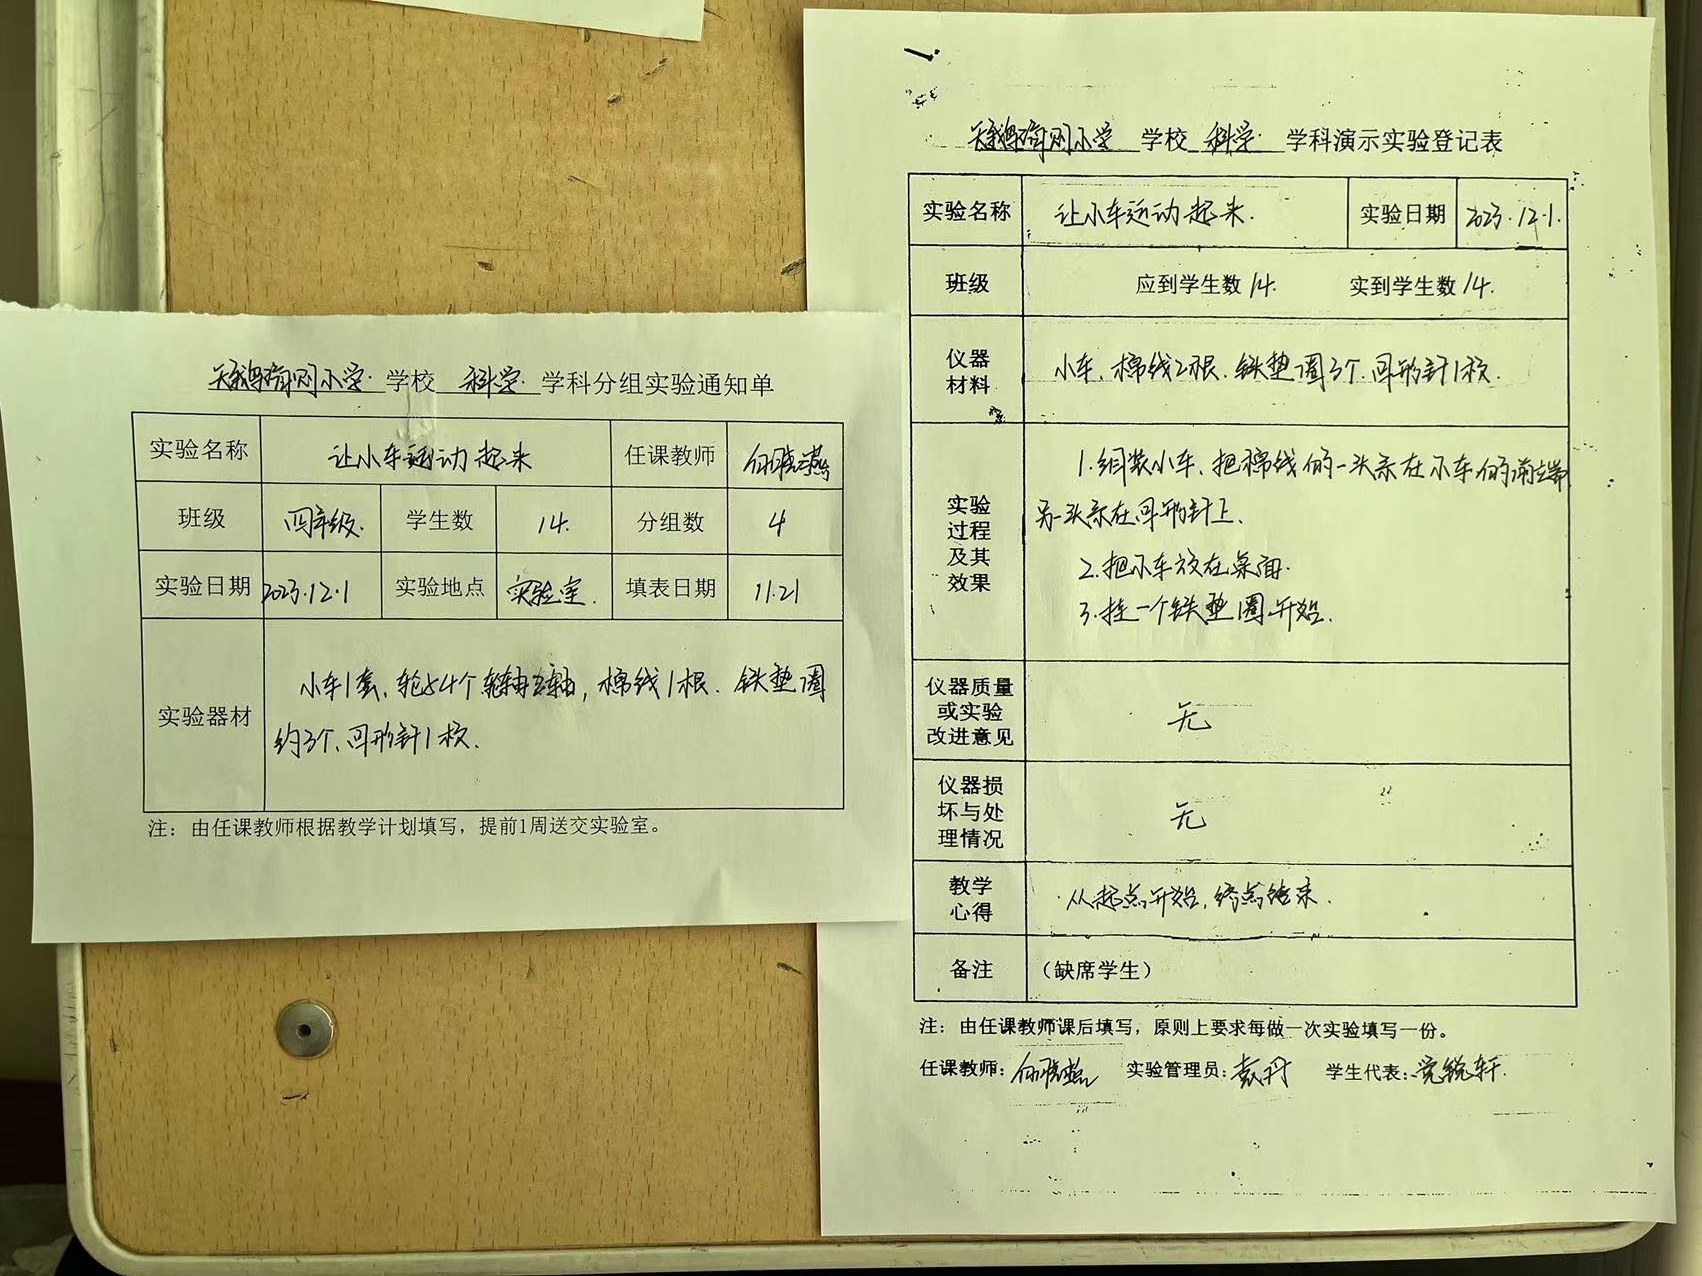 学校 科学 学科分组实验通知单
实验名称 让小车运动起来 任课教师
班级 四年级. 学生数 14. 分组数 4
实验日期 2023.12.1 实验地点 实验室. 填表日期 11.21
实验器材 小车1套、轮子4个 棉线1根. 铁垫圈
约3个、回形针1枚.
注：由任课教师根据教学计划填写，提前1周送交实验室。
学校 科学. 学科演示实验登记表
实验名称 让小车运动起来. 实验日期 2023.12.1.
班级 应到学生数14. 实到学生数14.
仪器
材料
小车、棉线2根. 铁垫圈3个. 回形针1枚.
实验
过程
及其
效果
1.组装小车、把棉线的一头系在小车的前端
另一头系在回形针上.
2.把小车放在桌面.
3.挂一个铁垫圈开始.
仪器质量
或实验
改进意见
无
仪器损
坏与处
理情况
无
教学
心得
从起点开始,终点结束.
备注 （缺席学生）
注：由任课教师课后填写，原则上要求每做一次实验填写一份。
任课教师： 实验管理员：袁丹 学生代表：党锐轩.